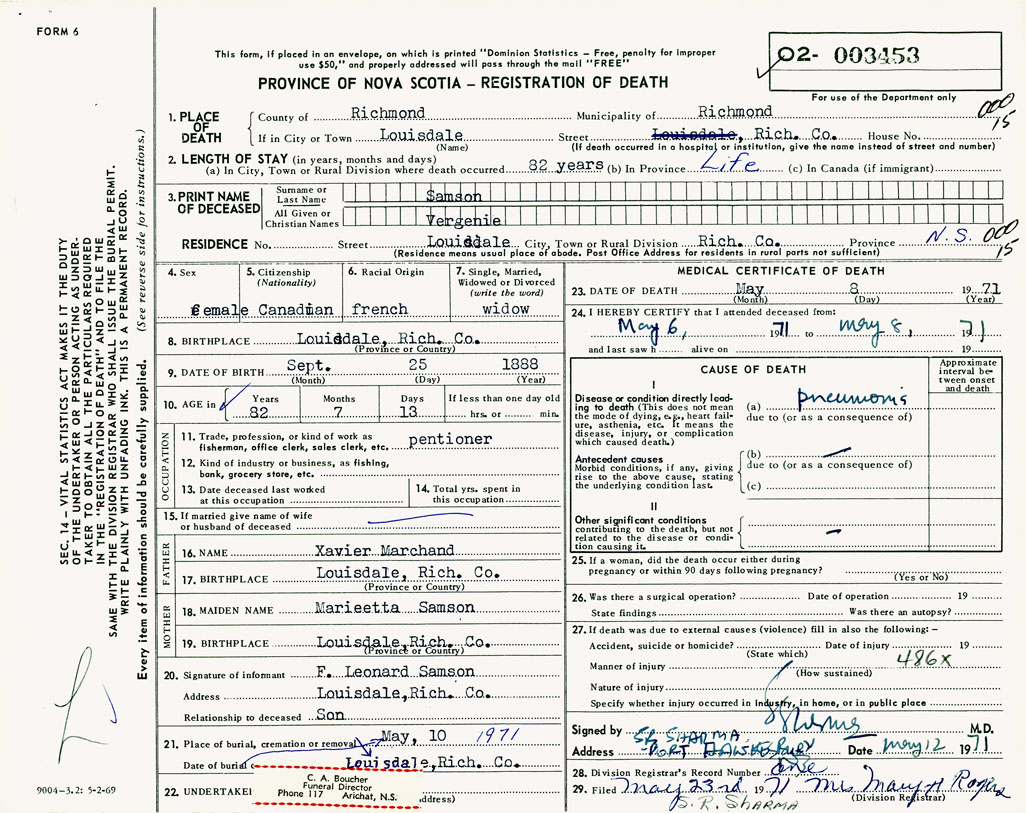 FORM 6
This form, if placed in an envelope, on which is printed "Dominion Statistics – Free, penalty for improper
use $50," and properly addressed will pass through the mail "FREE"
PROVINCE OF NOVA SCOTIA – REGISTRATION OF DEATH
02- 003453
For use of the Department only
1. PLACE OF DEATH
County of Richmond Municipality of Richmond
000
15
If in City or Town Louisdale Street Louisdale, Rich. Co. House No.
(Name) (If death occurred in a hospital or institution, give the name instead of street and number)
2. LENGTH OF STAY (in years, months and days)
(a) In City, Town or Rural Division where death occurred 82 years (b) In Province Life (c) In Canada (if immigrant)
3. PRINT NAME OF DECEASED
Surname or Last Name Samson
All Given or Christian Names Vergenie
RESIDENCE No. Street Louisdale City, Town or Rural Division Rich. Co. Province N.S.
000
15
(Residence means usual place of abode. Post Office Address for residents in rural parts not sufficient)
4. Sex
female
5. Citizenship
(Nationality)
Canadian
6. Racial Origin
french
7. Single, Married,
Widowed or Divorced
(write the word)
widow
8. BIRTHPLACE Louisdale, Rich. Co.
(Province or Country)
9. DATE OF BIRTH Sept. 25 1888
(Month) (Day) (Year)
10. AGE in
Years Months Days If less than one day old
82 7 13 hrs. or min.
OCCUPATION
11. Trade, profession, or kind of work as
fisherman, office clerk, sales clerk, etc. pentioner
12. Kind of industry or business, as fishing,
bank, grocery store, etc.
13. Date deceased last worked
at this occupation
14. Total yrs. spent in
this occupation
15. If married give name of wife
or husband of deceased
FATHER
16. NAME Xavier Marchand
17. BIRTHPLACE Louisdale, Rich. Co.
(Province or Country)
MOTHER
18. MAIDEN NAME Marieetta Samson
19. BIRTHPLACE Louisdale, Rich. Co.
(Province or Country)
20. Signature of informant F. Leonard Samson
Address Louisdale, Rich. Co.
Relationship to deceased Son
21. Place of burial, cremation or removal May, 10 1971
Date of burial Louisdale, Rich. Co.
22. UNDERTAKE
C. A. Boucher
Funeral Director
Phone 117 Arichat, N.S.
ddress)
MEDICAL CERTIFICATE OF DEATH
23. DATE OF DEATH May 8 1971
(Month) (Day) (Year)
24. I HEREBY CERTIFY that I attended deceased from:
May 6, 1971 to May 8, 1971
and last saw h alive on 19
CAUSE OF DEATH
Approximate
interval be-
tween onset
and death
I
Disease or condition directly lead-
ing to death (This does not mean
the mode of dying, e.g., heart fail-
ure, asthenia, etc. It means the
disease, injury, or complication
which caused death.)
(a) pneumonia
due to (or as a consequence of)
Antecedent causes
Morbid conditions, if any, giving
rise to the above cause, stating
the underlying condition last.
(b)
due to (or as a consequence of)
(c)
II
Other significant conditions
contributing to the death, but not
related to the disease or condi-
tion causing it.
25. If a woman, did the death occur either during
pregnancy or within 90 days following pregnancy?
(Yes or No)
26. Was there a surgical operation? Date of operation 19
State findings Was there an autopsy?
27. If death was due to external causes (violence) fill in also the following: –
Accident, suicide or homicide? Date of injury 19
(State which)
486x
Manner of injury
(How sustained)
Nature of injury
Specify whether injury occurred in industry, in home, or in public place
Signed by SR SHARMA M.D.
Address PORT HAWKESBURY Date May 12 1971
28. Division Registrar's Record Number
29. Filed May 23rd 1971 Mrs Mary A Rogers
(Division Registrar)
S. R. SHARMA
SEC. 14 – VITAL STATISTICS ACT MAKES IT THE DUTY
OF THE UNDERTAKER OR PERSON ACTING AS UNDER-
TAKER TO OBTAIN ALL THE PARTICULARS REQUIRED
IN THE "REGISTRATION OF DEATH" AND TO FILE THE
SAME WITH THE DIVISION REGISTRAR WHO SHALL ISSUE THE BURIAL PERMIT.
WRITE PLAINLY WITH UNFADING INK. THIS IS A PERMANENT RECORD.
Every item of information should be carefully supplied. (See reverse side for instructions.)
9004-3.2: 5-2-69